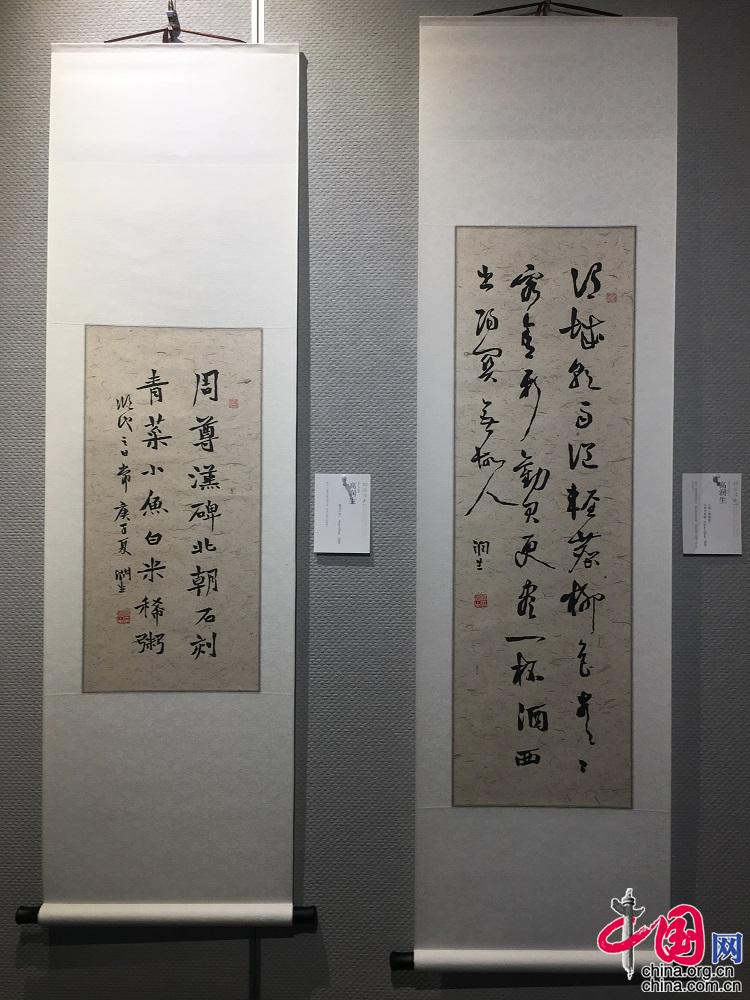 周尊漢碑北朝石刻
青菜小魚白米稀粥
日常 庚子夏 潤生
高润生
渭城朝雨浥輕塵柳色青々
客舍新勸君更盡一杯酒西
出陽關無故人
潤生
高润生
中国网
china.org.cn
china.com.cn